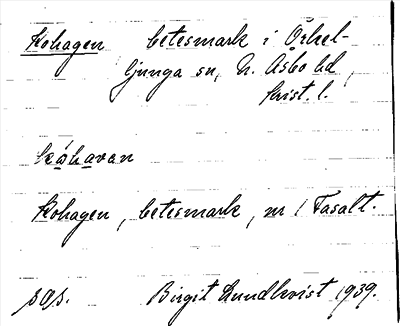 Kohagen betesmark i Örkel-
ljunga sn, N. Åsbo hd,
Krist. l.
Kohagen, betesmark, nr 1 Fasalt.
sås. Birgit Lundkvist 1939.